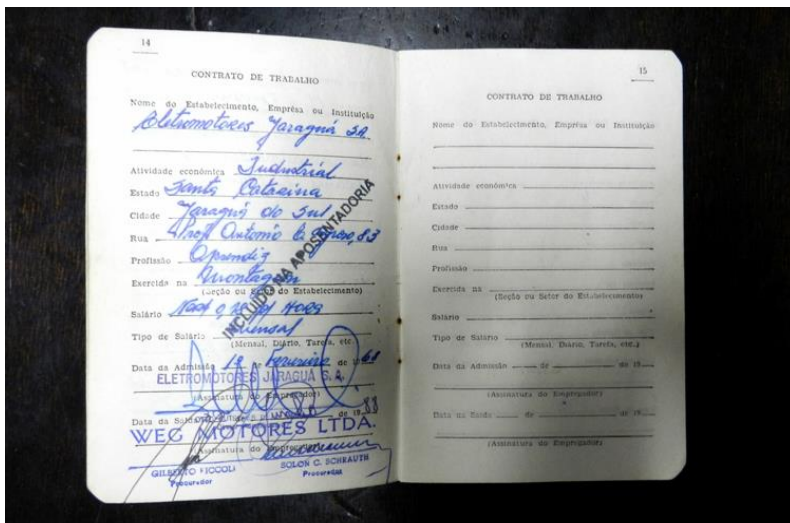 14
CONTRATO DE TRABALHO
Nome do Estabelecimento, Emprêsa ou Instituição
Eletromotores Jaraguá SA
Atividade econômica Industrial
Estado Santa Catarina
Cidade Jaraguá do Sul
Rua Prof. Antonio E. 83
Profissão Aprendiz
Exercida na Montagem
(Seção ou Setor do Estabelecimento)
Salário Hora
Tipo de Salário Mensal
(Mensal, Diário, Tarefa, etc.
Data da Admissão 19 de Fevereiro de 19
ELETROMOTORES JARAGUÁ S. A.
(Assinatura do Empregador)
Data da Saída de de 19 88
WEG MOTORES LTDA.
(Assinatura do Empregador)
GILBERTO PICCOLI
Procurador
SOLON C. SCHRAUTH
Procurador
INCLUIDO NA APOSENTADORIA
15
CONTRATO DE TRABALHO
Nome do Estabelecimento, Emprêsa ou Instituição
Atividade econômica
Estado
Cidade
Rua
Profissão
Exercida na
(Seção ou Setor do Estabelecimento
Salário
Tipo de Salário
(Mensal, Diário, Tarefa, etc.,)
Data da Admissão de de 19
(Assinatura do Empregador)
Data da Saída de de 19
(Assinatura do Empregador)